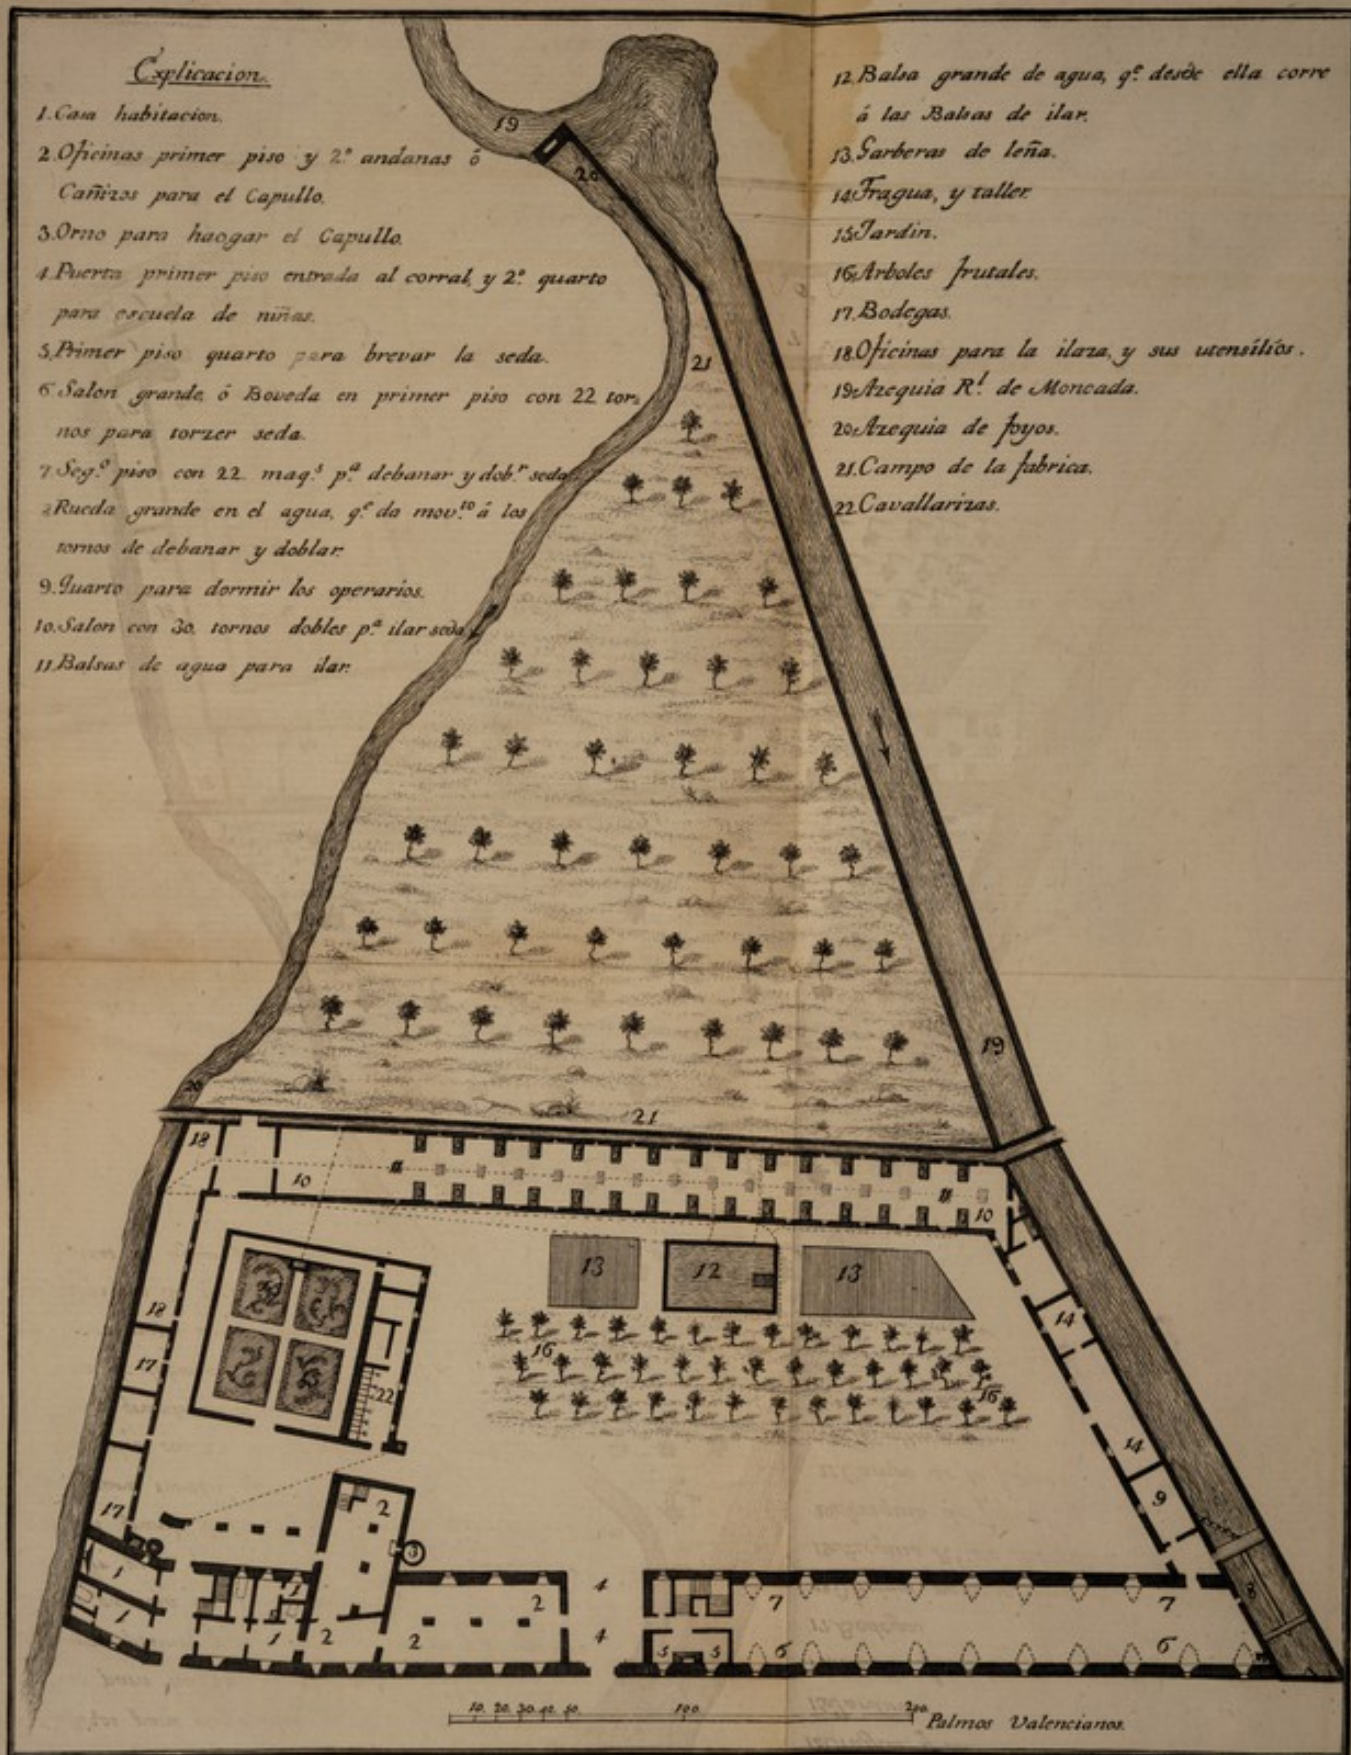 Explicacion.
1. Casa habitacion.
2. Oficinas primer piso y 2.º andanas ó
Cañizos para el Capullo.
3. Orno para haogar el Capullo.
4. Puerta primer piso entrada al corral, y 2.º quarto
para escuela de niñas.
5. Primer piso quarto para brevar la seda.
6. Salon grande, ó Boveda en primer piso con 22 tor-
nos para torzer seda.
7. Seg.º piso con 22. maq.s p.a debanar y dob.r seda
Rueda grande en el agua, q.e da mov.to á los
tornos de debanar y doblar.
9. Quarto para dormir los operarios.
10. Salon con 30. tornos dobles p.a ilar seda
11. Balsas de agua para ilar.
12. Balsa grande de agua, q.e desde ella corre
á las Balsas de ilar.
13. Garberas de leña.
14. Fragua, y taller.
15. Jardin.
16. Arboles frutales.
17. Bodegas.
18. Oficinas para la ilaza, y sus utensilios.
19. Azequia R.l de Moncada.
20. Azequia de foyos.
21. Campo de la fabrica.
22. Cavallarizas.
19
20
21
19
20
21
18
10
11
11
10
13
12
13
18
14
16
17
22
16
14
17
2
9
3
1
1
2
4
7
7
8
1
1
2
2
4
5
5
6
6
10. 20. 30. 40. 50. 100. 200.
Palmos Valencianos.